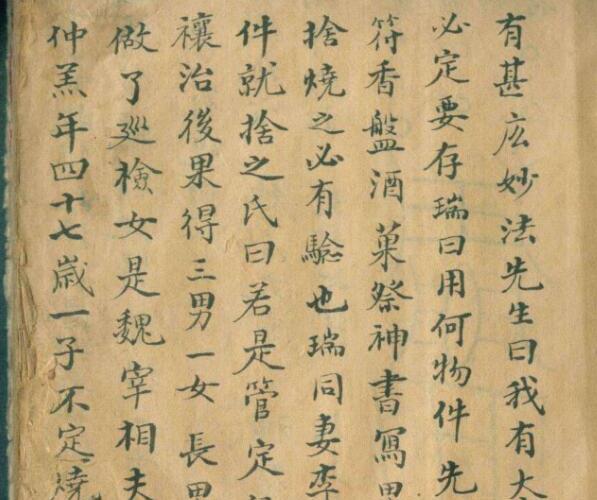 有甚庅妙法先生曰我有大
必定要存瑞曰用何物件先
符香盤酒菓祭神書寫男
捨燒之必有驗也瑞同妻李
件就捨之氏曰若是管定
禳治後果得三男一女長男
做了廵檢女是魏宰相夫
仲羔年四十七歲一子不定燒